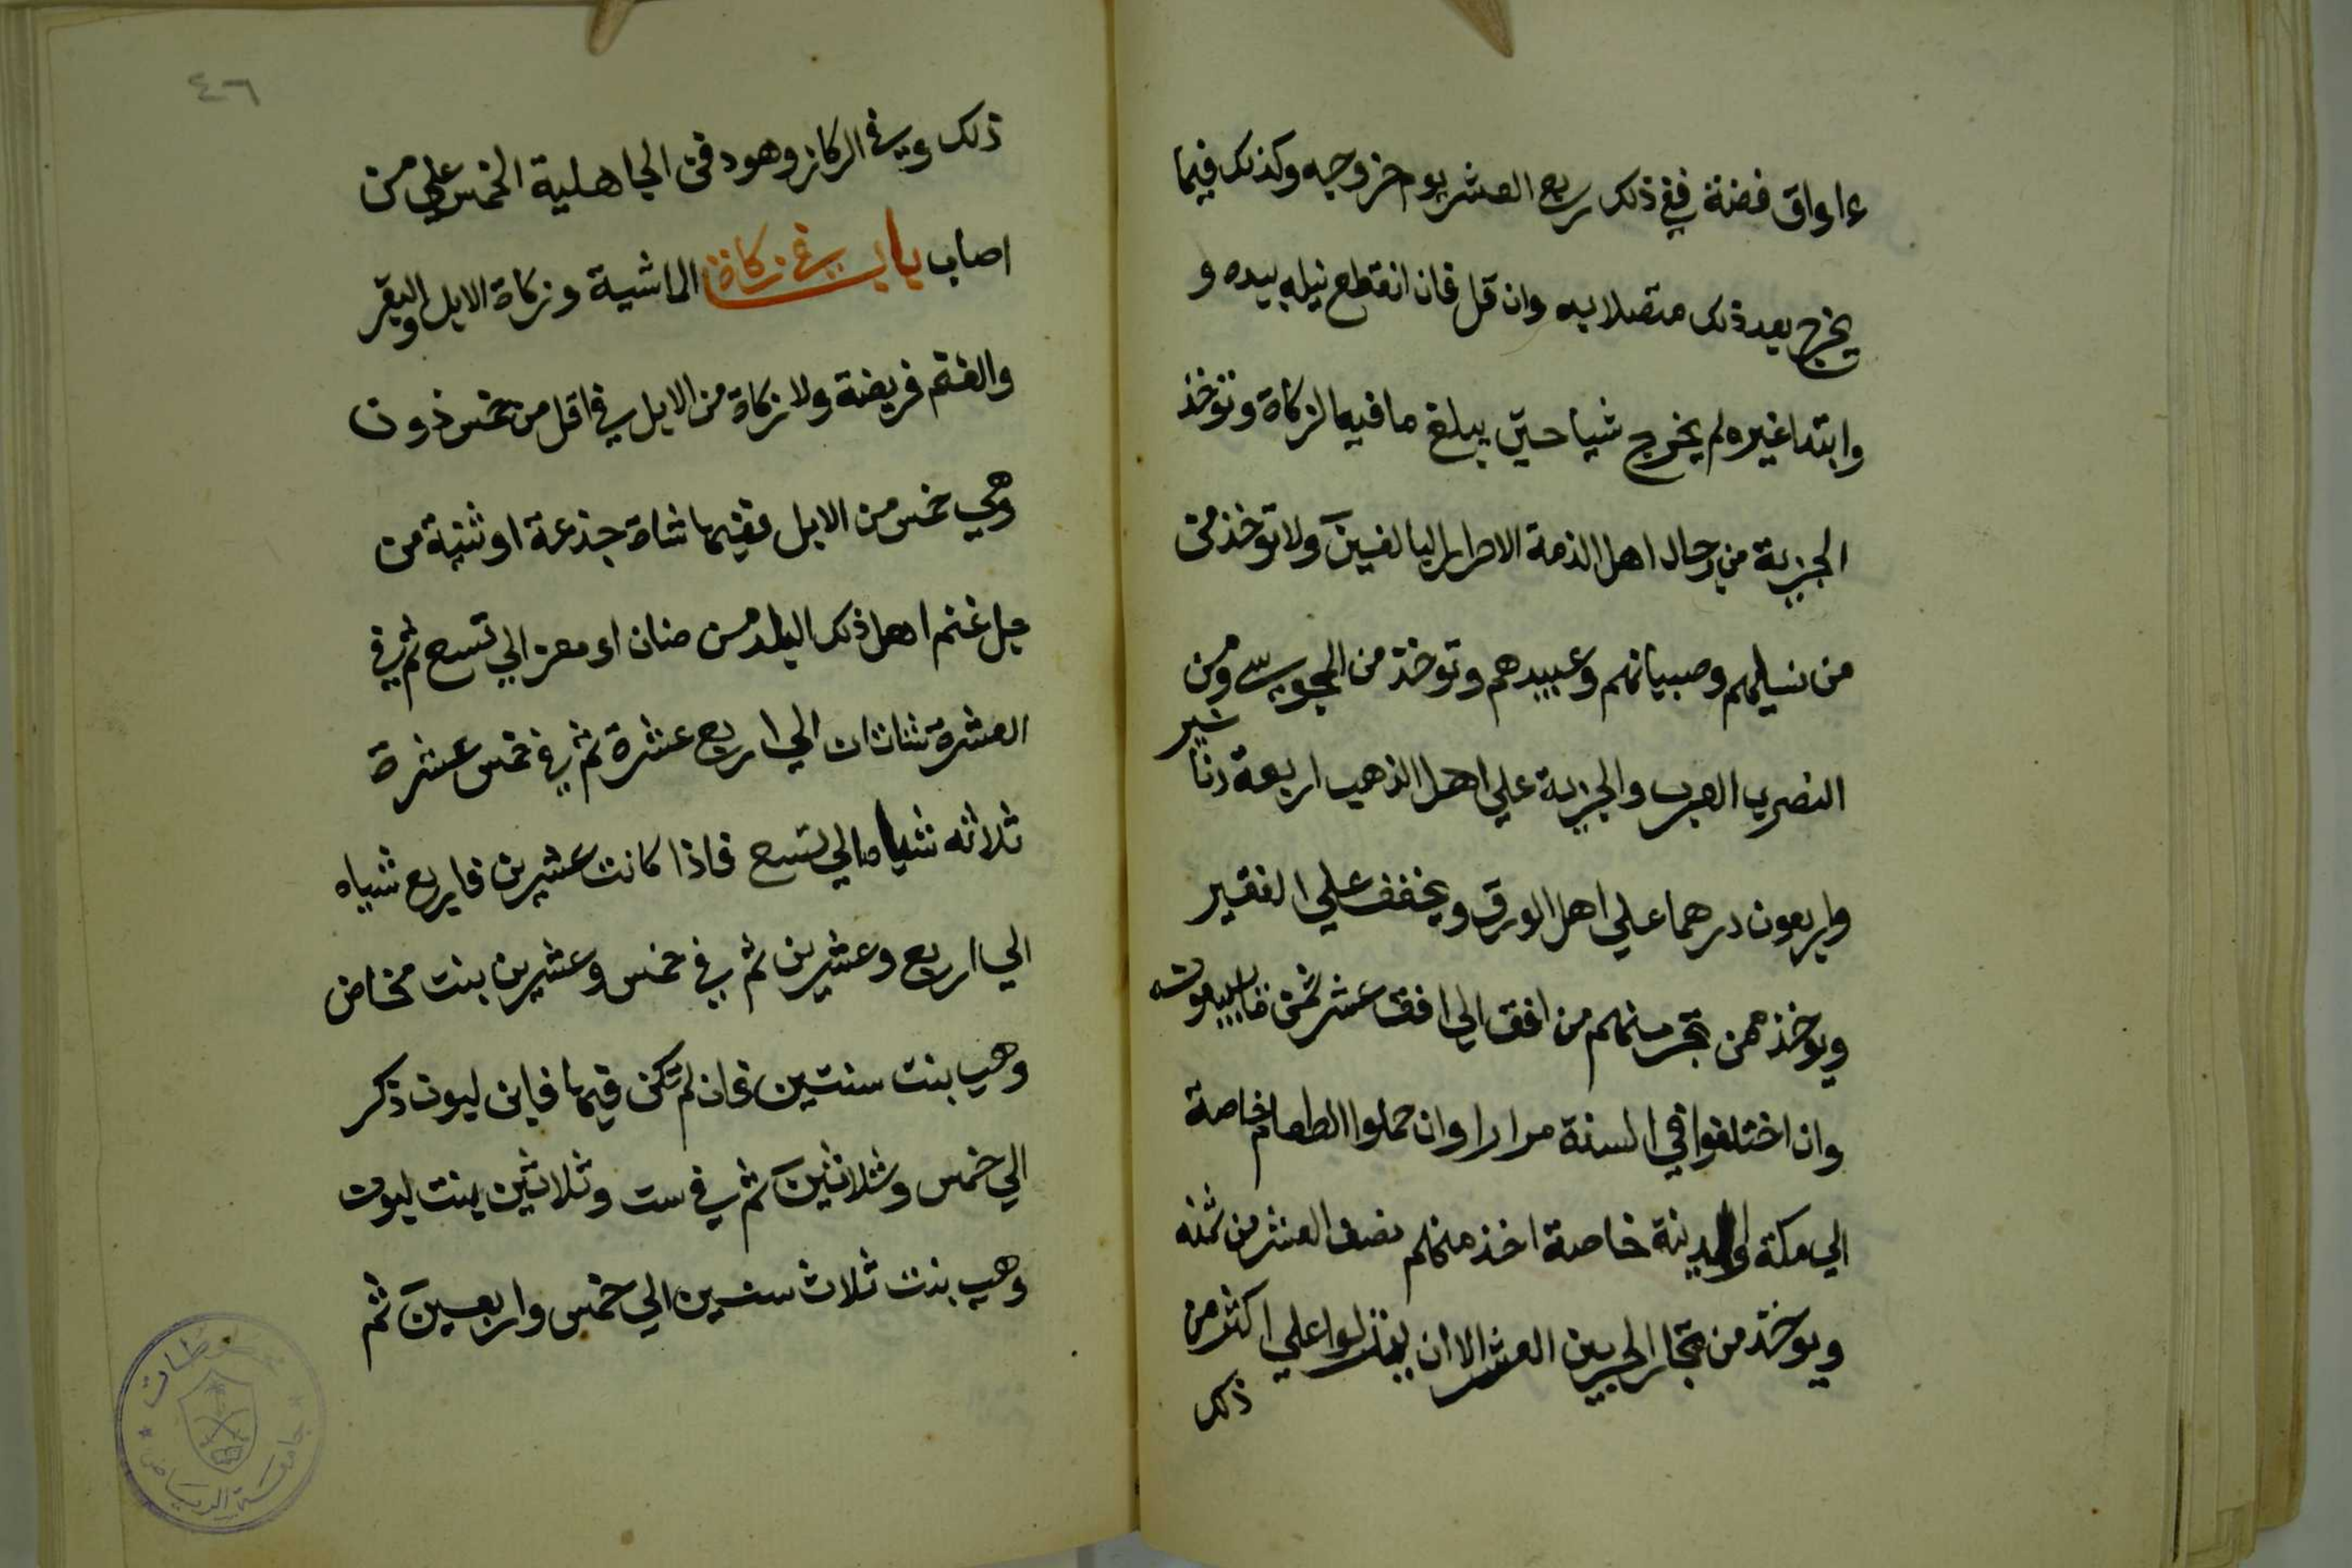 ءاواق فضة ففي ذلك ربع العشر يوم خروجه وكذلك فيما
يخرج بعد ذلك متصلا به وان قل فان انقطع نيله بيده و
وابتدا غيره لم يخرج شيا حتي يبلغ ما فيه الزكاة وتوخذ
الجزية من رجال اهل الذمة الاحرار البالغين ولا توخذ من
من نسايهم وصبيانهم وعبيدهم وتوخذ من المجوس ومن
النصري العرب والجزية علي اهل الذهب اربعة دنانير
واربعون درهما علي اهل الورق ويخفف علي الفقير
ويوخذ ممن تجر منهم من افق الي افق عشر ثمن ما يبيعونه
وان اختلفوا في السنة مرارا وان حملوا الطعام خاصة
الي مكة والمدينة خاصة اخذ منهم نصف العشر من ثمنه
ويوخذ من تجار الحربين العشر الا ان ينزلوا علي اكثر من
ذلك
٤٦
ذلك وفي الركاز وهو دفن الجاهلية الخمس علي من
اصابه باب في زكاة الماشية وزكاة الابل والبقر
والغنم فريضة ولا زكاة من الابل في اقل من خمس ذون
وهي خمس من الابل ففيها شاة جذعة او ثنية من
جل غنم اهل ذلك البلد من ضان او معز الي تسع ثم في
العشرة شاتان الي اربع عشرة ثم في خمس عشرة
ثلاثه شياه الي تسع فاذا كانت عشرين فاربع شياه
الي اربع وعشرين ثم في خمس وعشرين بنت مخاض
وهي بنت سنتين فان لم تكن فيها فابن لبون ذكر
الي خمس وثلاثين ثم في ست وثلاثين بنت لبون
وهي بنت ثلاث سنين الي خمس واربعين ثم
جامعة الرياض
مخطوطات